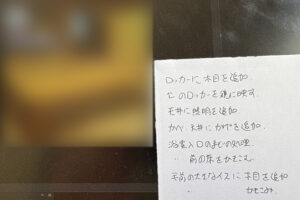 ロッカーに木目を追加
左のロッカーを鏡に映す.
天井に照明を追加
かべ 天井に カゲを追加
浴室入口のまどの処理.
・ 前の床をかさこむ.
手前の大きなイスに 木目を追加